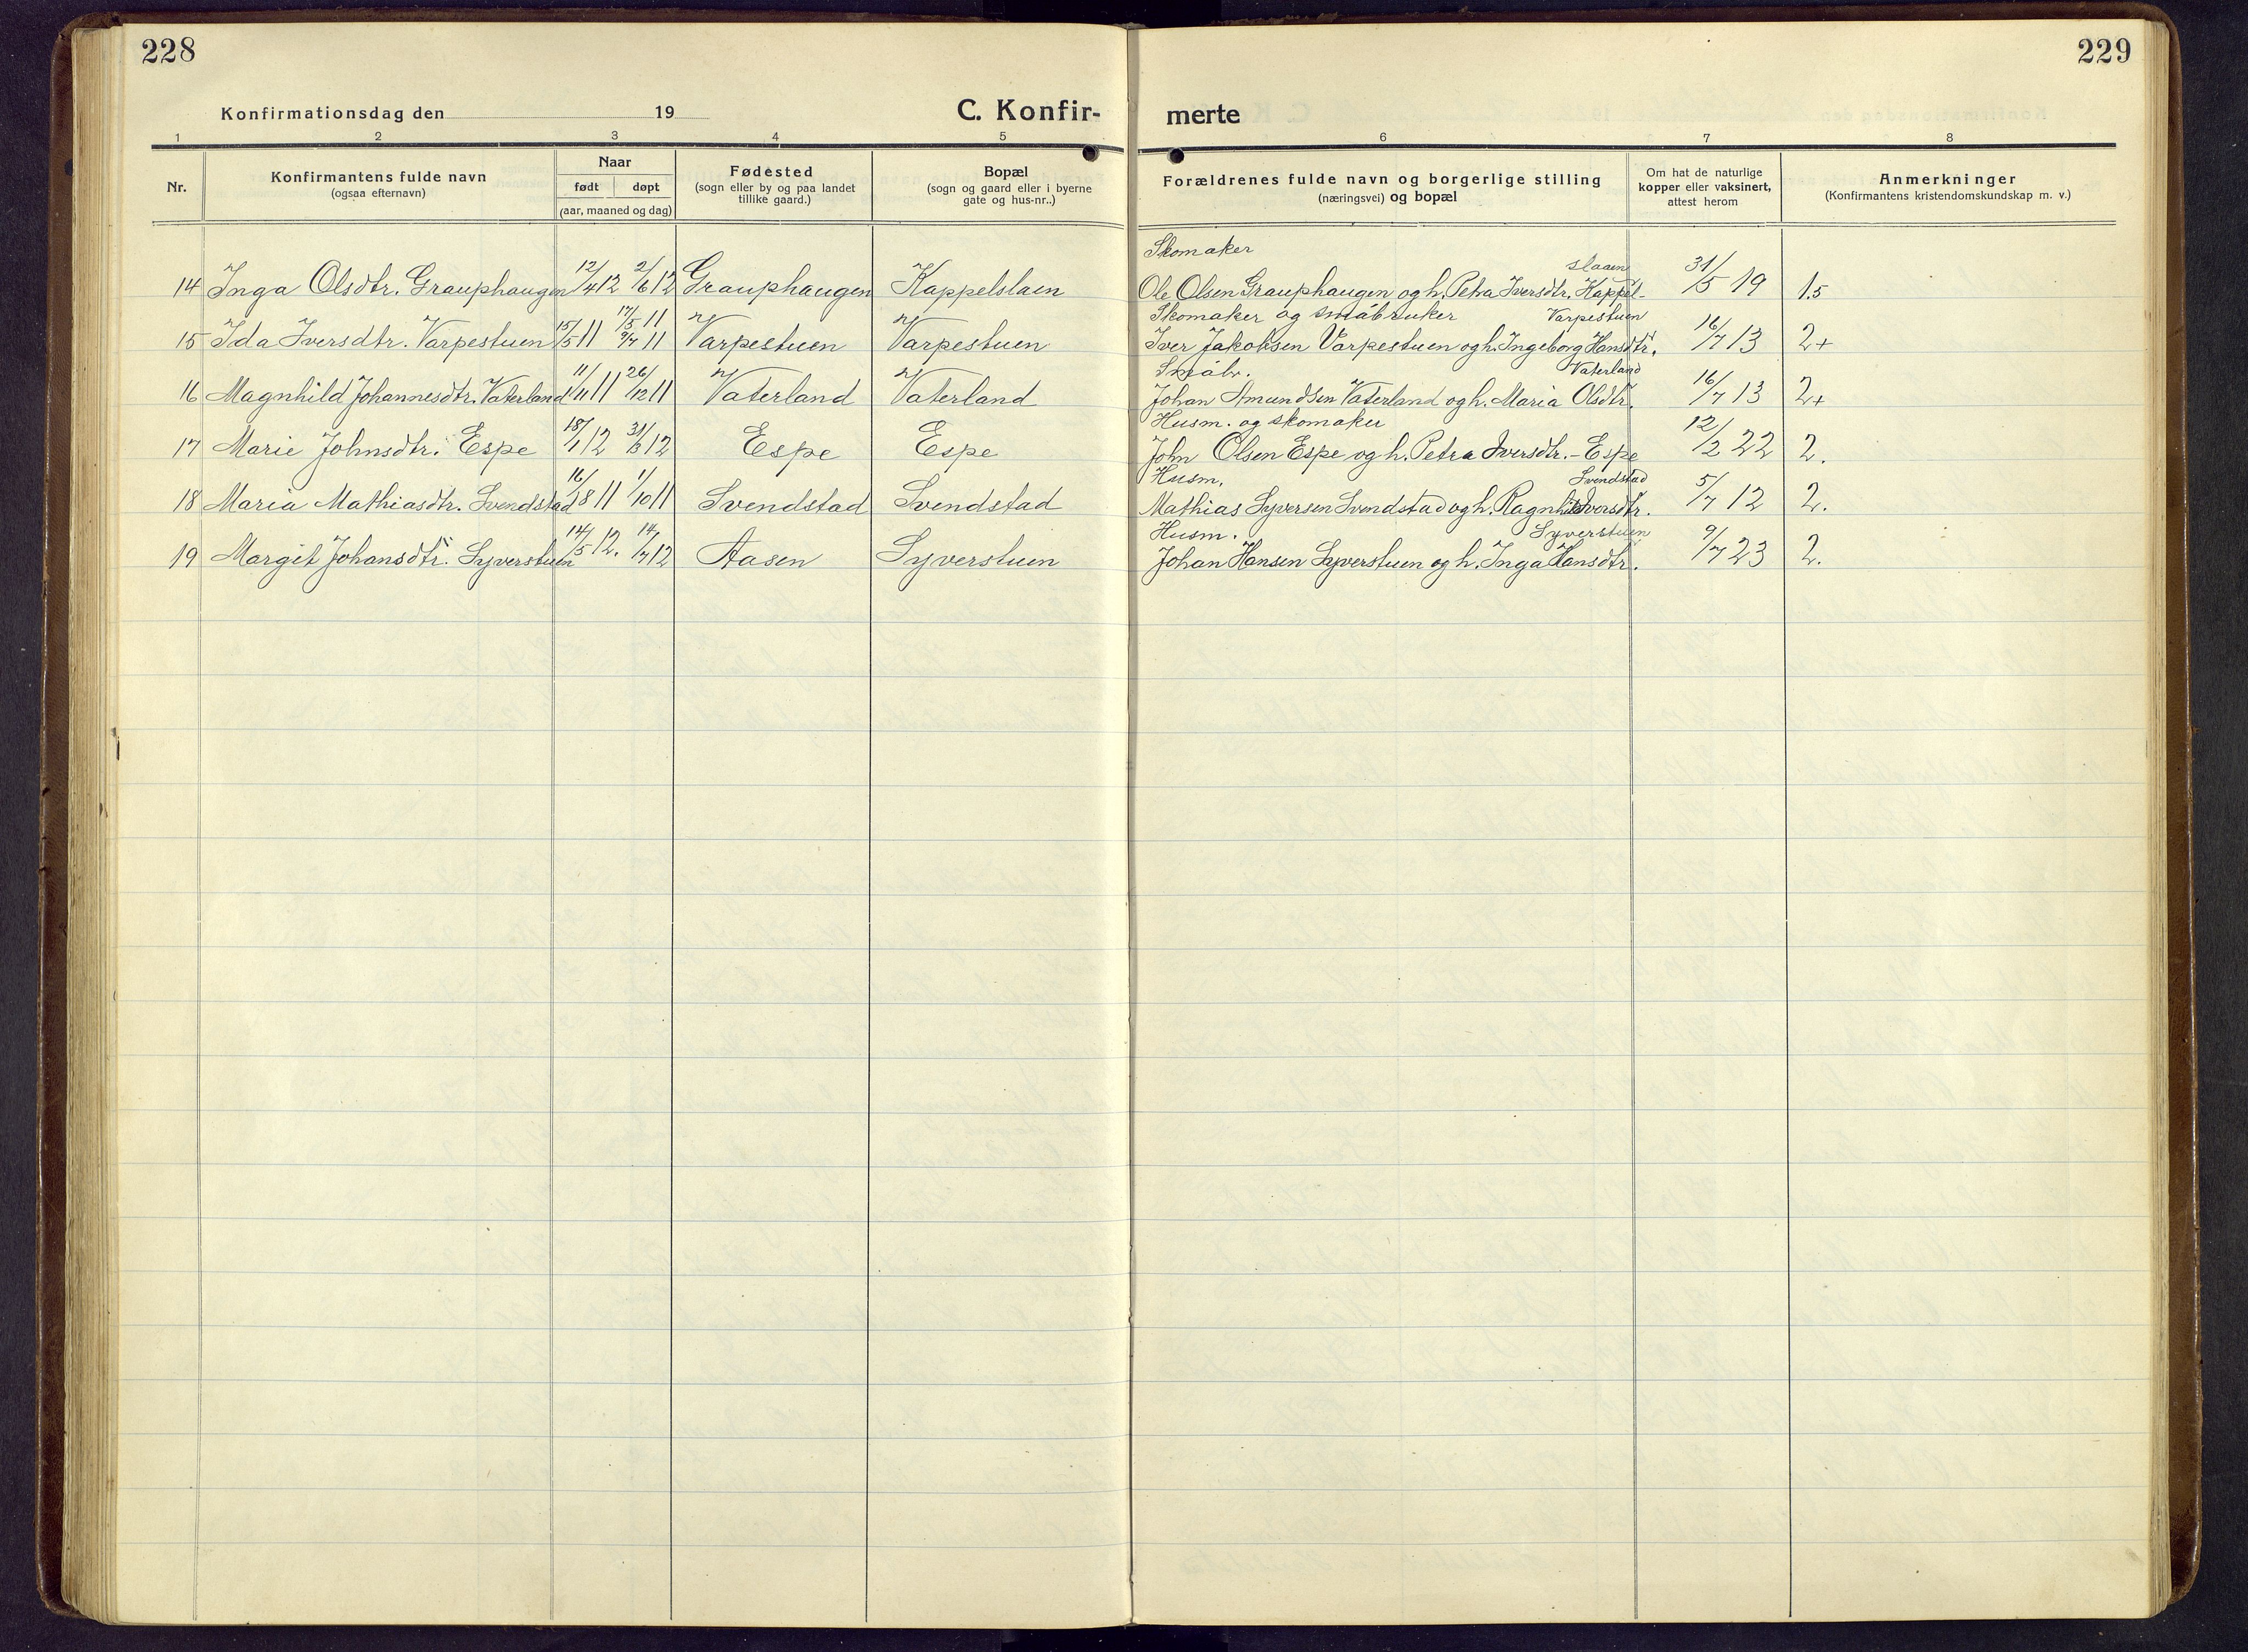 228
229
Konfirmationsdag den 19
C. Konfir-
merte
1 2 3 4 5 6 7 8
Nr.
Konfirmantens fulde navn
(ogsaa efternavn)
Naar
født døpt
(aar, maaned og dag)
Fødested
(sogn eller by og paa landet
tillike gaard.)
Bopæl
(sogn og gaard eller i byerne
gate og hus-nr..)
Forældrenes fulde navn og borgerlige stilling
(næringsvei) og bopæl
Om hat de naturlige
kopper eller vaksinert,
attest herom
Anmerkninger
(Konfirmantens kristendomskundskap m. v.)
Skomaker
slaaen
14 Inga Olsdtr. Grauphaugen 12/4 12 2/6 12 Grauphaugen Kappelslaen Ole Olsen Grauphaugen og h. Petra Iversdtr. Kappel- 31/5 19 1.5
17/5 11 Skomaker og småbruker Varpestuen
15 Ida Iversdtr. Varpestuen 15/5 11 9/7 11 Varpestuen Varpestuen Iver Jakobsen Varpestuen og h. Ingeborg Hansdtr. 16/7 13 2+
Småbr. Vaterland
16 Magnhild Johannesdtr. Vaterland 11/11 11 26/12 11 Vaterland Vaterland Johan Amundsen Vaterland og h. Maria Olsdtr. 16/7 13 2+
Husm. og skomaker
17 Marie Johnsdtr. Espe 18/1 12 31/3 12 Espe Espe John Olsen Espe og h. Petra Iversdtr. - Espe 12/2 22 2.
Husm. Svendstad
18 Maria Mathiasdtr. Svendstad 16/8 11 1/10 11 Svendstad Svendstad Mathias Syversen Svendstad og h. Ragnhild Iversdtr. 5/7 12 2.
Husm. Syverstuen
19 Margit Johansdtr. Syverstuen 14/5 12. 14/7 12 Aasen Syverstuen Johan Hansen Syverstuen og h. Inga Hansdtr. 9/7 23 2.